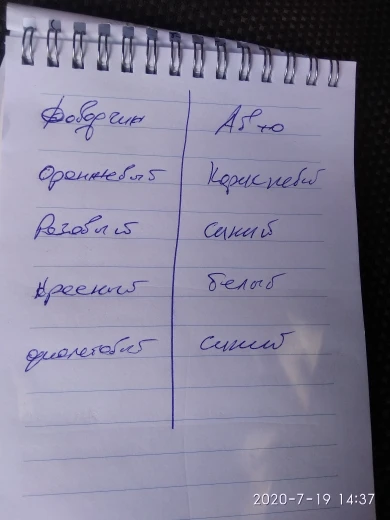 Авто
Оранжевый Коричневый
Розовый синий
Красный белый
фиолетовый синий
2020-7-19 14:37